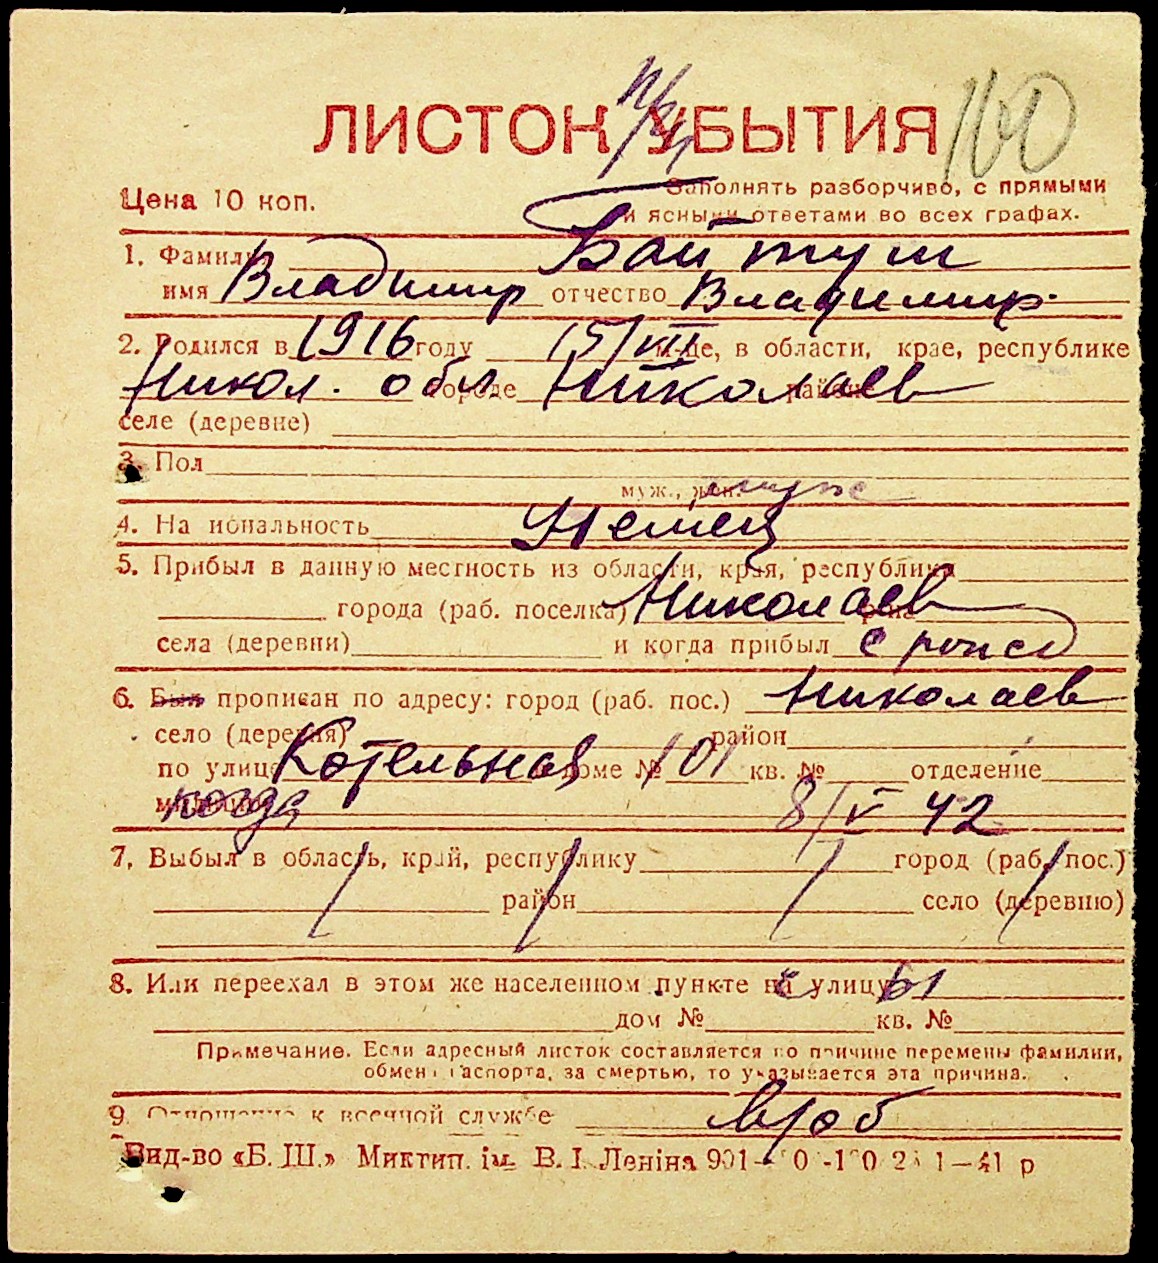 ЛИСТОК УБЫТИЯ 160
Цена 10 коп.
Заполнять разборчиво, с прямыми
и ясными ответами во всех графах.
1. Фамилия Байтуш
имя Владимир отчество Владимир.
2. Родился в 1916 году 15/VII м-це, в области, крае, республике
Никол. обл. городе Николаев районе
селе (деревне)
3. Пол
муж., жен. муж
4. Национальность Немец
5. Прибыл в данную местность из области, края, республики
города (раб. поселка) Николаев
села (деревни) и когда прибыл с рожд
6. Был прописан по адресу: город (раб. пос.) Николаев
село (деревня) район
по улице Котельная доме № 101 кв. № отделение
милиции когда 8/IV 42
7. Выбыл в область, край, республику город (раб. пос.)
район село (деревню)
8. Или переехал в этом же населенном пункте на улицу
дом № кв. №
Примечание. Если адресный листок составляется по причине перемены фамилии,
обмена паспорта, за смертью, то указывается эта причина.
9. Отношение к военной службе
Вид-во «Б. Ш.» Миктип. ім. В. І. Леніна